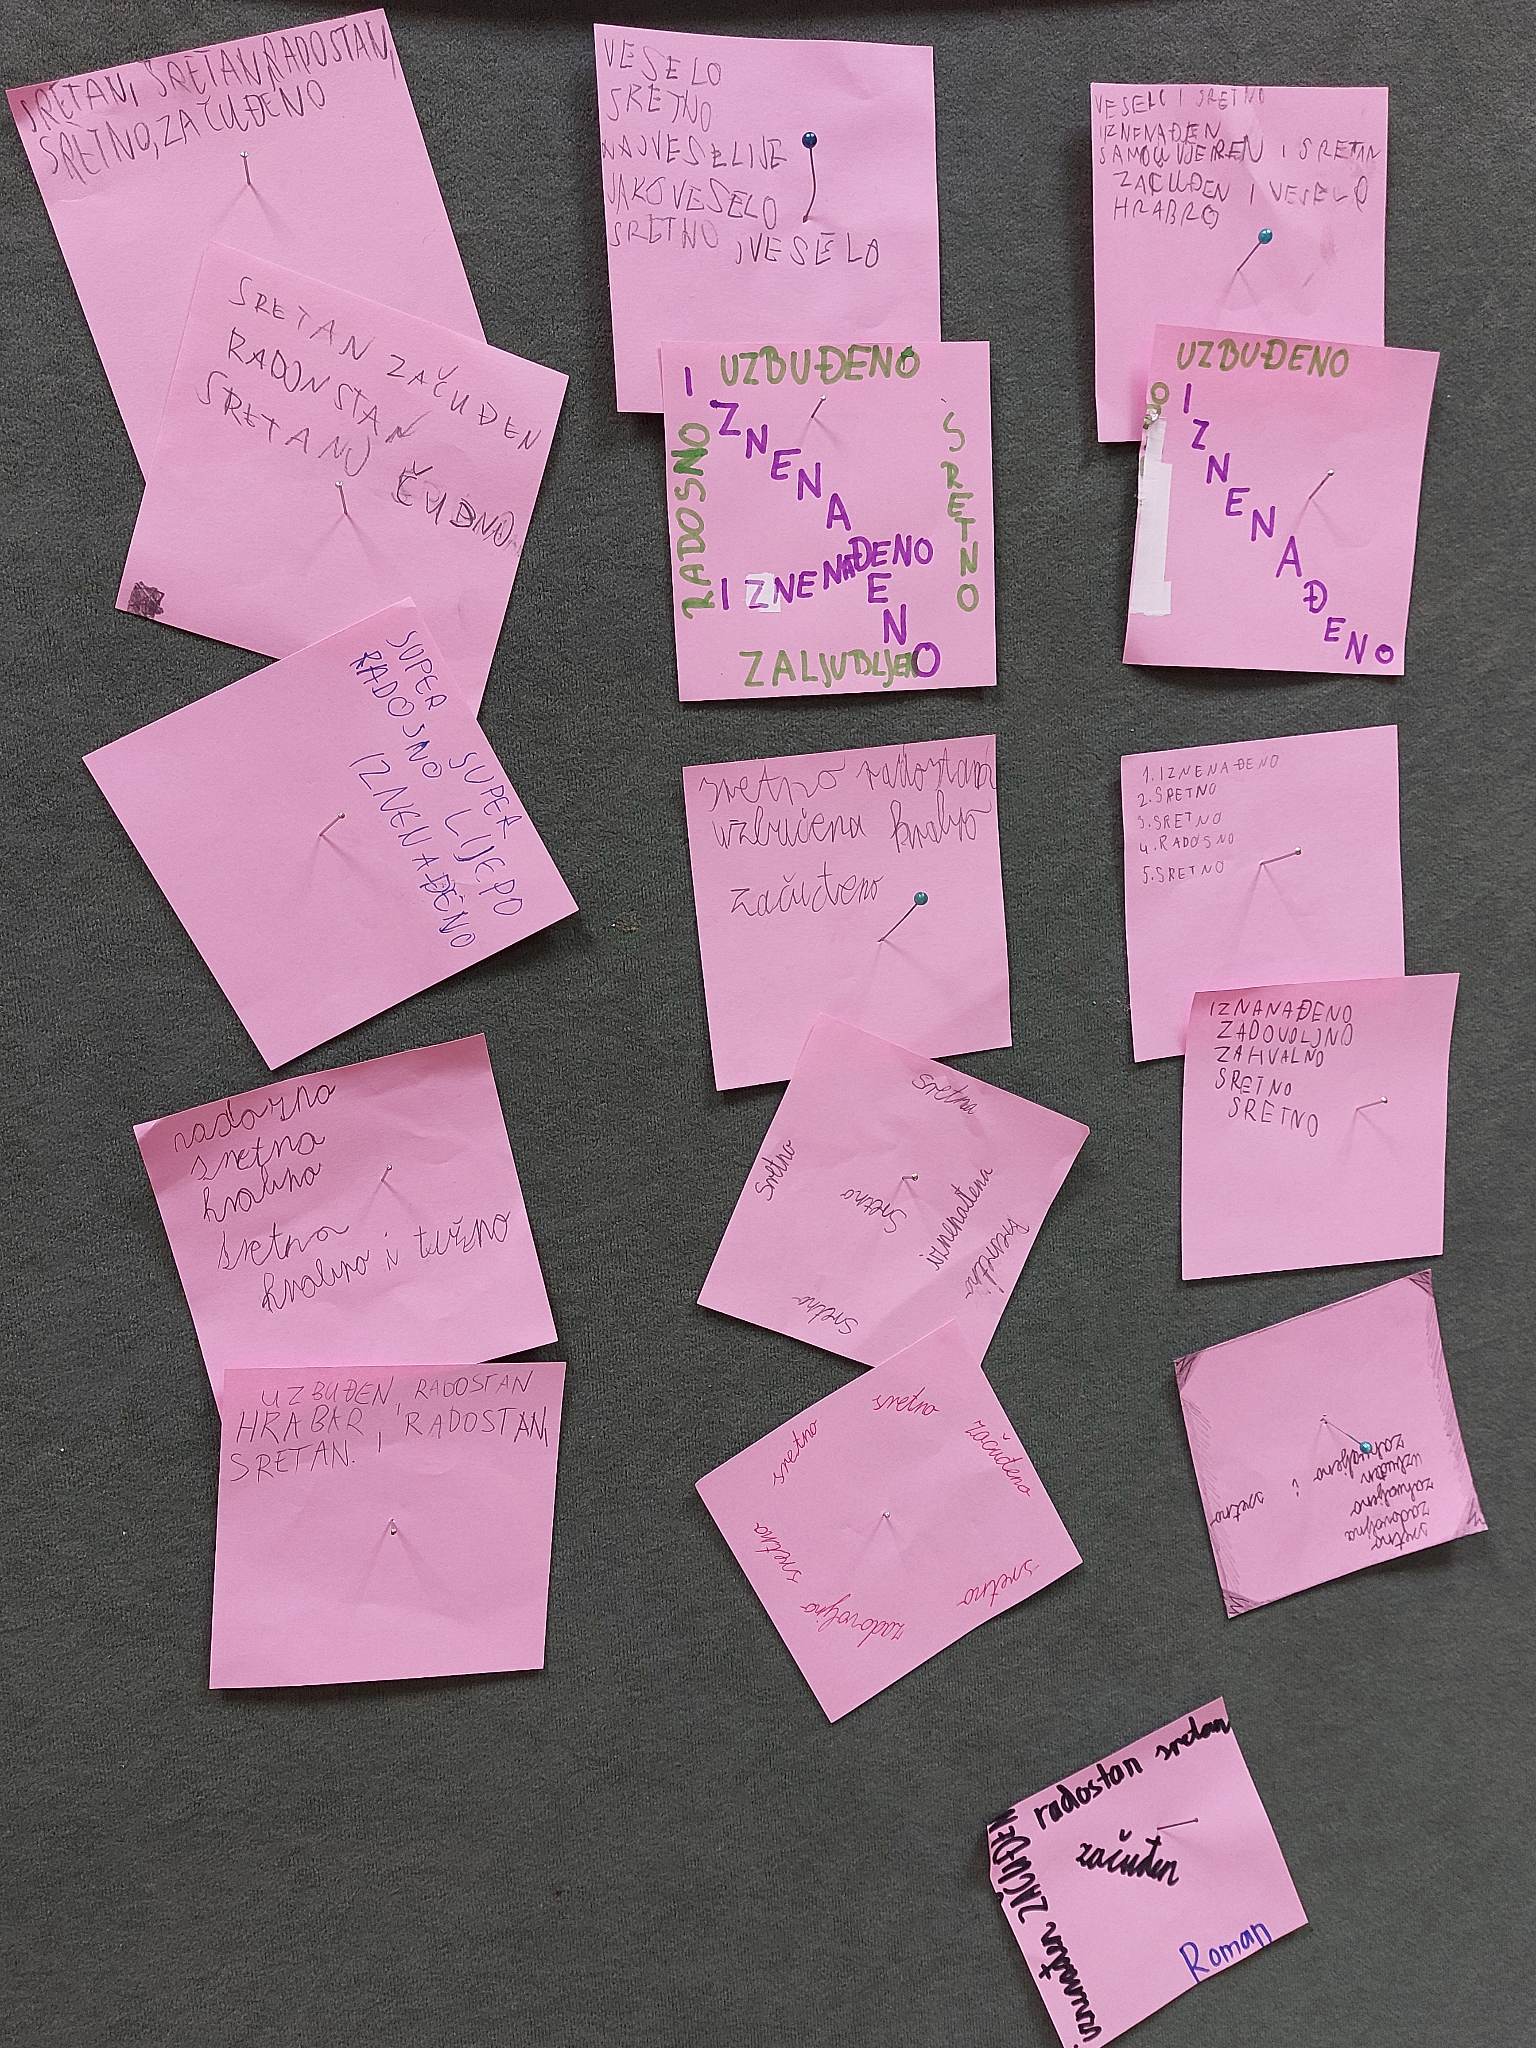 SRETAN, SRETAN, RADOSTAN,
SRETNO, ZAČUĐENO
SRETAN ZAČUĐEN
RADONSTAN
SRETANO ČUDNO
SUPER SUPER
RADOSNO LIJEPO
IZNENAĐENO
radozno
sretna
hrabro
sretna
hrabro i tužno
UZBUĐEN, RADOSTAN
HRABAR, RADOSTAN,
SRETAN.
VESELO
SRETNO
NAJVESELIJE
JAKO VESELO
SRETNO, VESELO
UZBUĐENO
IZNENAĐENO
RADOSNO
SRETNO
IZNENAĐENO
ZALJUBLJENO
sretno radostan
uzbučena hrabro
začuđeno
sretna
sretno
Sretno
iznenađena
sretno
sretno
začuđeno
sretno
sretna
sretno
zadovoljno
VESELO I SRETNO
IZNENAĐEN
SAMOUVJEREN I SRETAN
ZAČUĐEN I VESELO
HRABRO
UZBUĐENO
O
IZNENAĐENO
1. IZNENAĐENO
2. SRETNO
3. SRETNO
4. RADOSNO
5. SRETNO
IZNANAĐENO
ZADOVOLJNO
ZAHVALNO
SRETNO
SRETNO
sretno
zadovoljna
zahvaljeno
uzbuđen
zahvaljeno i sretno
radostan sretan
začuđen
ZAČUĐEN
Roman